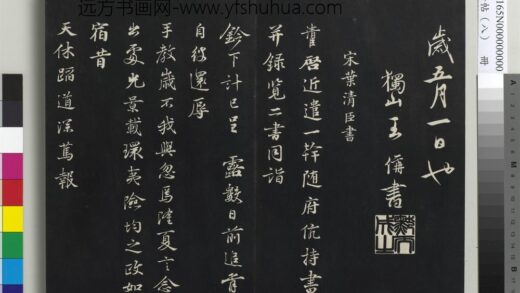 远方书画网-www.yfshuhua.com
歲五月一日也
獨山王 書
宋葉清臣書
啓近遣一幹随府伉持書
并録覽二書同詣
鈴下計已呈 露數日前進
自彼還辱
手教歲不我與忽焉隆夏言念
出處光景載環夷險均之政如
宿昔
天休蹈道深篤報
165N000000000
帖(八) 冊